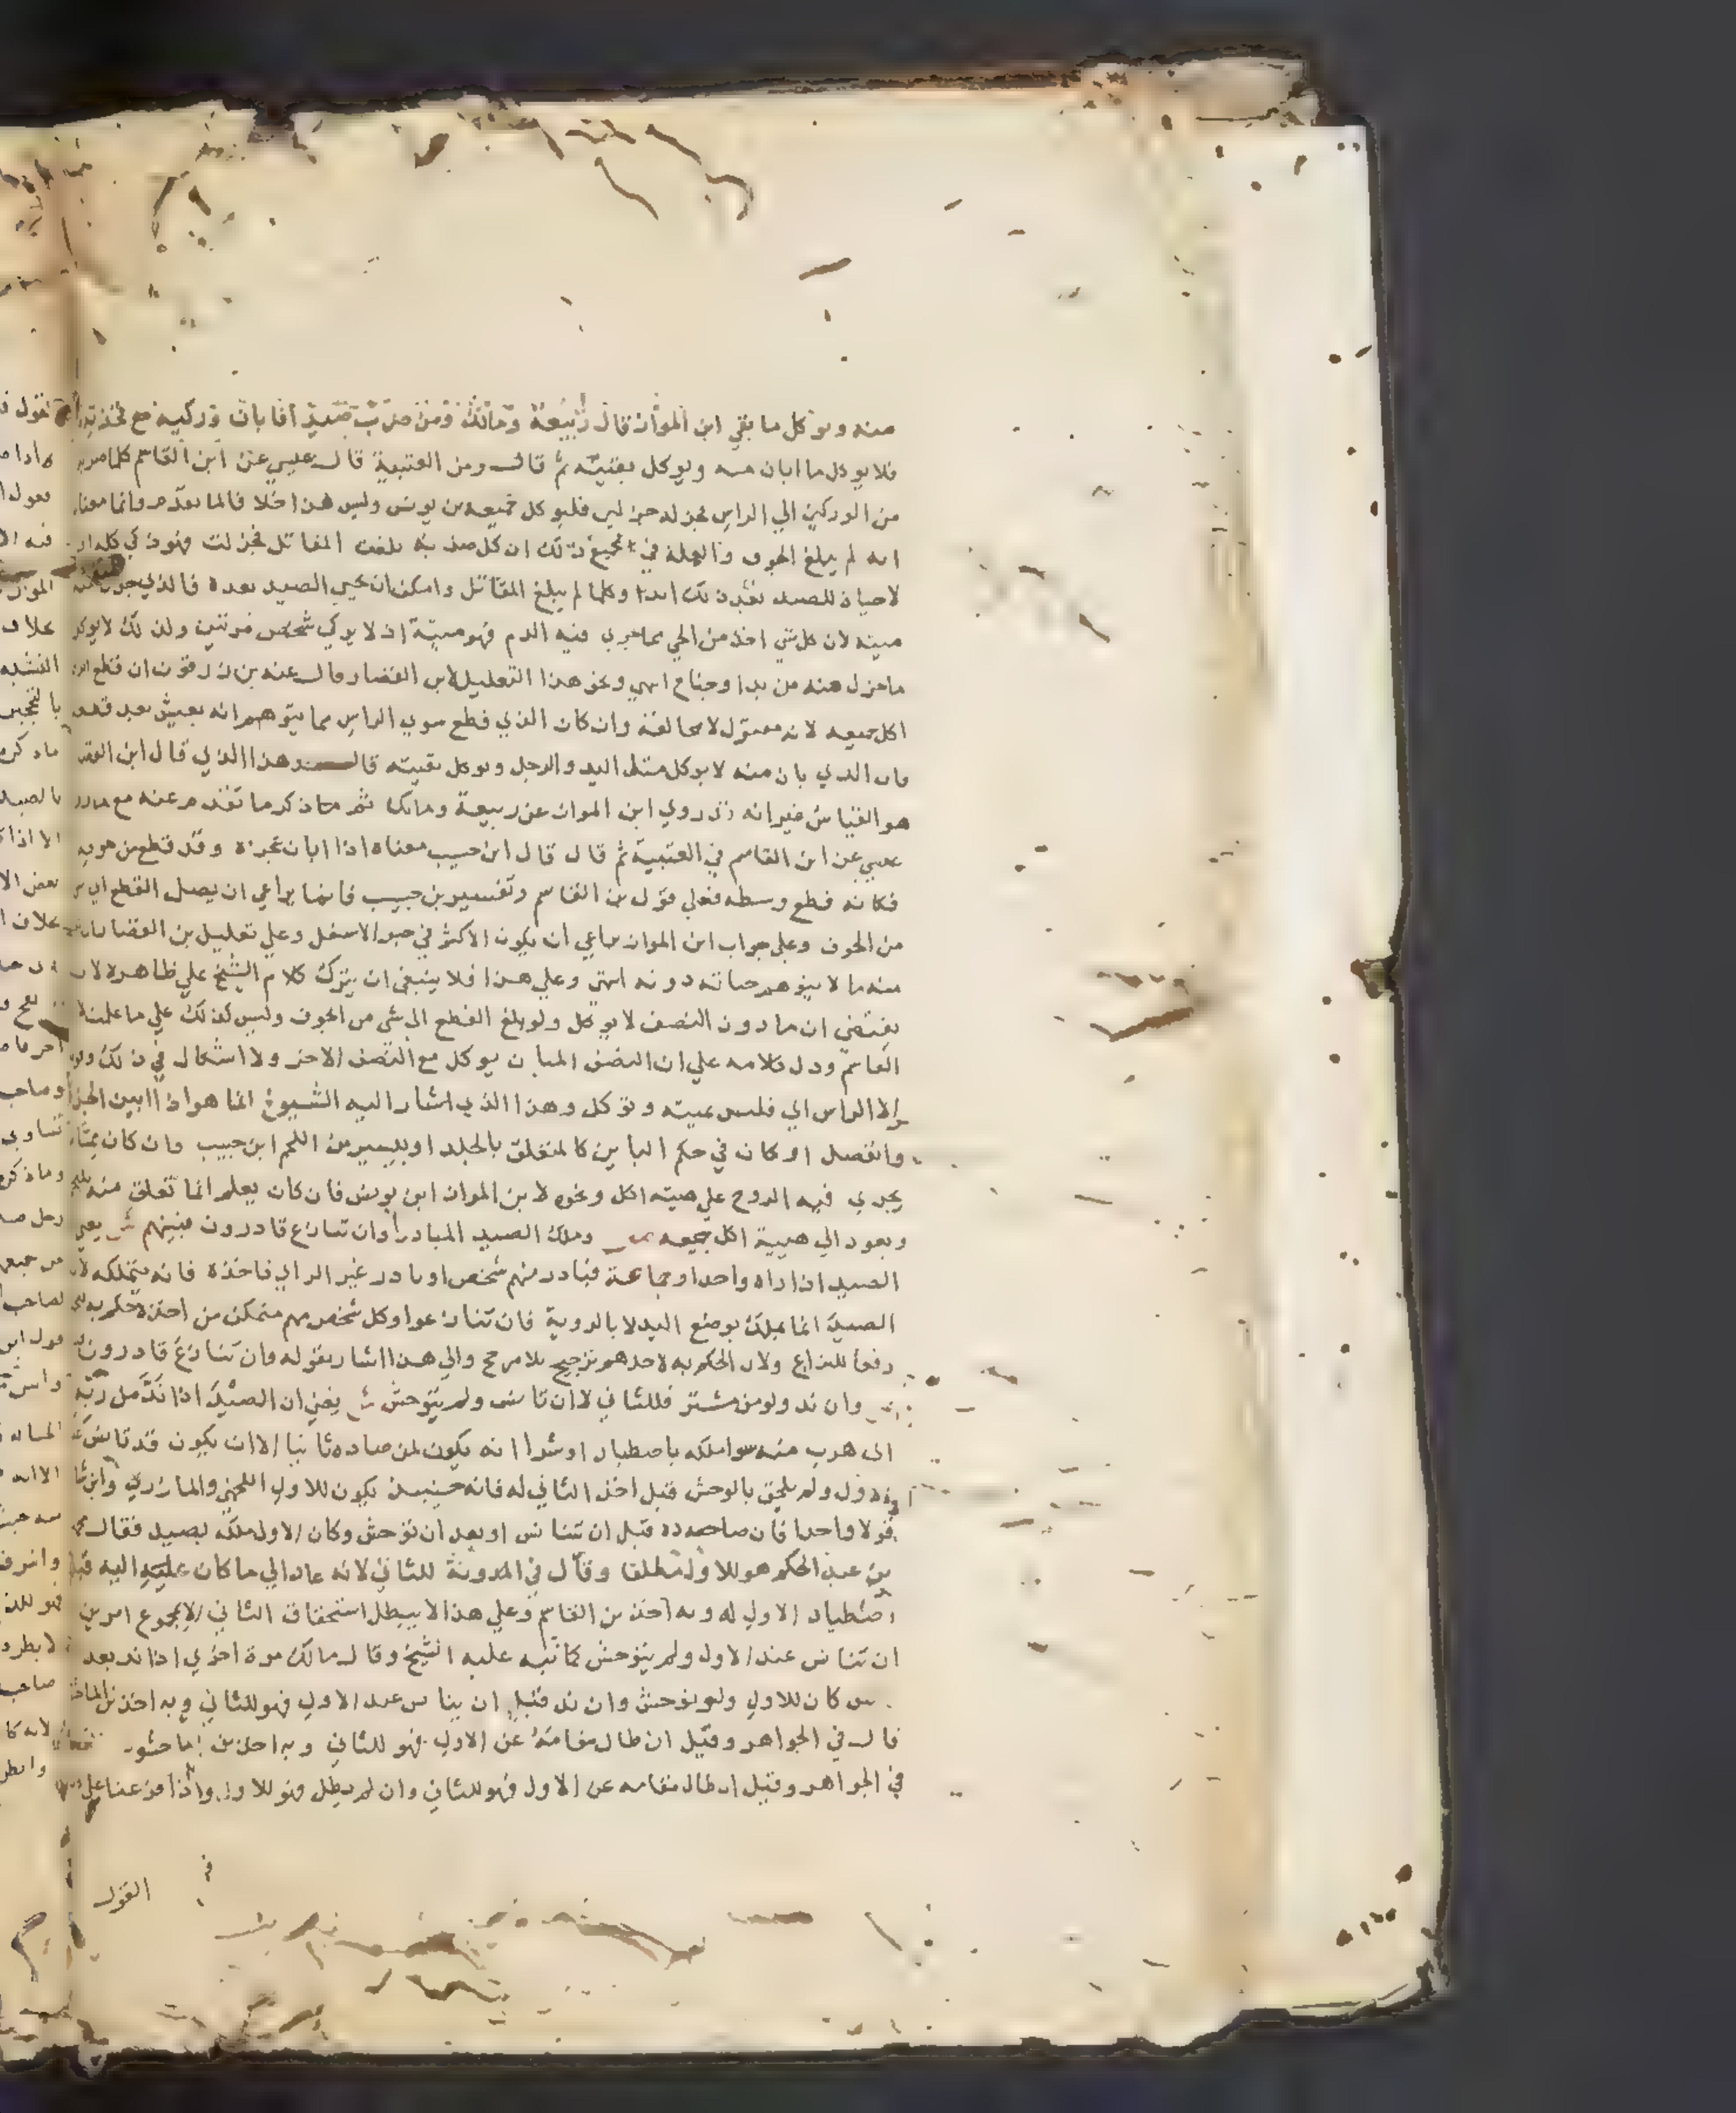 منه ويوكل ما بقي ابن المواز قال ربيعة ومالك ومن ضرب صيدا فابان وركيه مع فخذيه
فلا يوكل ما ابان منه ويوكل بقيته ثم قال ومن العتبية قال عيسي عن ابن القاسم كلما ضربه
من الوركين الي الراس فجزله جزلين فليوكل جميعه بن يونس وليس هذا خلافا لما تقدم وانما معناه
انه لم يبلغ الجوف والعلة في جميع ذلك ان كل ضربة بلغت المقاتل فجزلت فهو ذكي كله اذ
لا حياة للصيد بعد ذلك ابدا وكلما لم يبلغ المقاتل وامكن ان يحيي الصيد بعده فالذي جزل منه
ميتة لان كل شي اخذ من الحي مما يجري فيه الدم فهو ميتة اذ لا يذكي شخص مرتين ولذلك لا يوكل
ما جزل منه من يد او جناح انتهي ونحو هذا التعليل لابن القصار وقال عنه بن زرقون ان قطع الراس
اكل جميعه لانه مقتول لا محالة وان كان الذي قطع سوي الراس مما يتوهم انه يعيش بعد قطعه
فان الذي بان منه لا يوكل مثل اليد والرجل ويوكل بقيته قال وهذا الذي قال ابن القصار
هو القياس غير انه قد روي ابن المواز عن ربيعة ومالك ثم ذكر ما تقدم عنه مع ما رواه
عيسي عن ابن القاسم في العتبية ثم قال قال ابن حبيب معناه اذا ابان عجزه وقد قطع من جوفه
فكانه قطع وسطه فعلي قول بن القاسم وتفسير بن حبيب فانما يراعي ان يصل القطع الي شي
من الجوف وعلي جواب ابن المواز يراعي ان يكون الاكثر في حيز الاسفل وعلي تعليل بن القصار
منه ما لا يتوهم حياته دونه انتهي وعلي هذا فلا ينبغي ان يترك كلام الشيخ علي ظاهره لانه
يقتضي ان ما دون النصف لا يوكل ولو بلغ القطع الي شي من الجوف وليس كذلك علي ما علمت لابن
القاسم ودل كلامه علي ان النصف المبان يوكل مع النصف الاخر ولا اشكال في ذلك وقوله
الا الراس اي فليس بميتة ويوكل وهذا الذي اشار اليه الشيوخ انما هو اذا ابين الجزء
وانفصل او كان في حكم البائن كالمتعلق بالجلد او بيسير من اللحم ابن حبيب وان كان مما
يجري فيه الروح علي هيئته اكل ونحوه لابن المواز ابن يونس فان كان يعلم انما تعلق منه يلتحم
ويعود الي هيئته اكل جميعه ص وملك الصيد المبادر وان تنازع قادرون فبينهم ش يعني
الصيد اذا راه واحد او جماعة فبادر منهم شخص او بادر غير الرائي فاخذه فانه يتملكه لان
الصيد انما يملك بوضع اليد لا بالروية فان تنازعوا وكل شخص منهم متمكن من اخذه حكم به لهم
دفعا للنزاع ولان الحكم به لاحدهم ترجيح بلا مرجح والي هذا اشار بقوله وان تنازع قادرون
ص وان ند ولو من مشتر فللثاني لا ان تانس ولم يتوحش ش يعني ان الصيد اذا ند من ربه
اي هرب منه سوا ملكه باصطياد او شرا انه يكون لمن صاده ثانيا الا ان يكون قد تانس عند
الاول ولم يلحق بالوحش قبل اخذ الثاني له فانه حينئذ يكون للاول اللخمي والمازري وابن شاس
قولا واحدا فان صاده قبل ان تانس او بعد ان توحش وكان الاول ملكه بصيد فقال محمد
بن عبد الحكم هو للاول مطلقا وقال في المدونة للثاني لانه عاد الي ما كان عليه قبل
اصطياد الاول له وبه اخذ بن القاسم وعلي هذا لا يبطل استحقاق الثاني الا بمجموع امرين
ان تانس عند الاول ولم يتوحش كما نبه عليه الشيخ وقال مالك مرة اخري اذا ند بعد
كان للاول ولو توحش وان ند قبل ان يتانس عند الاول فهو للثاني وبه اخذ بن الماجشون
قال في الجواهر وقيل ان طال مقامه عن الاول فهو للثاني وبه اخذ بن الماجشون
في الجواهر وقيل ان طال مقامه عن الاول فهو للثاني وان لم يطل فهو للاول واذا فرعنا علي
القول